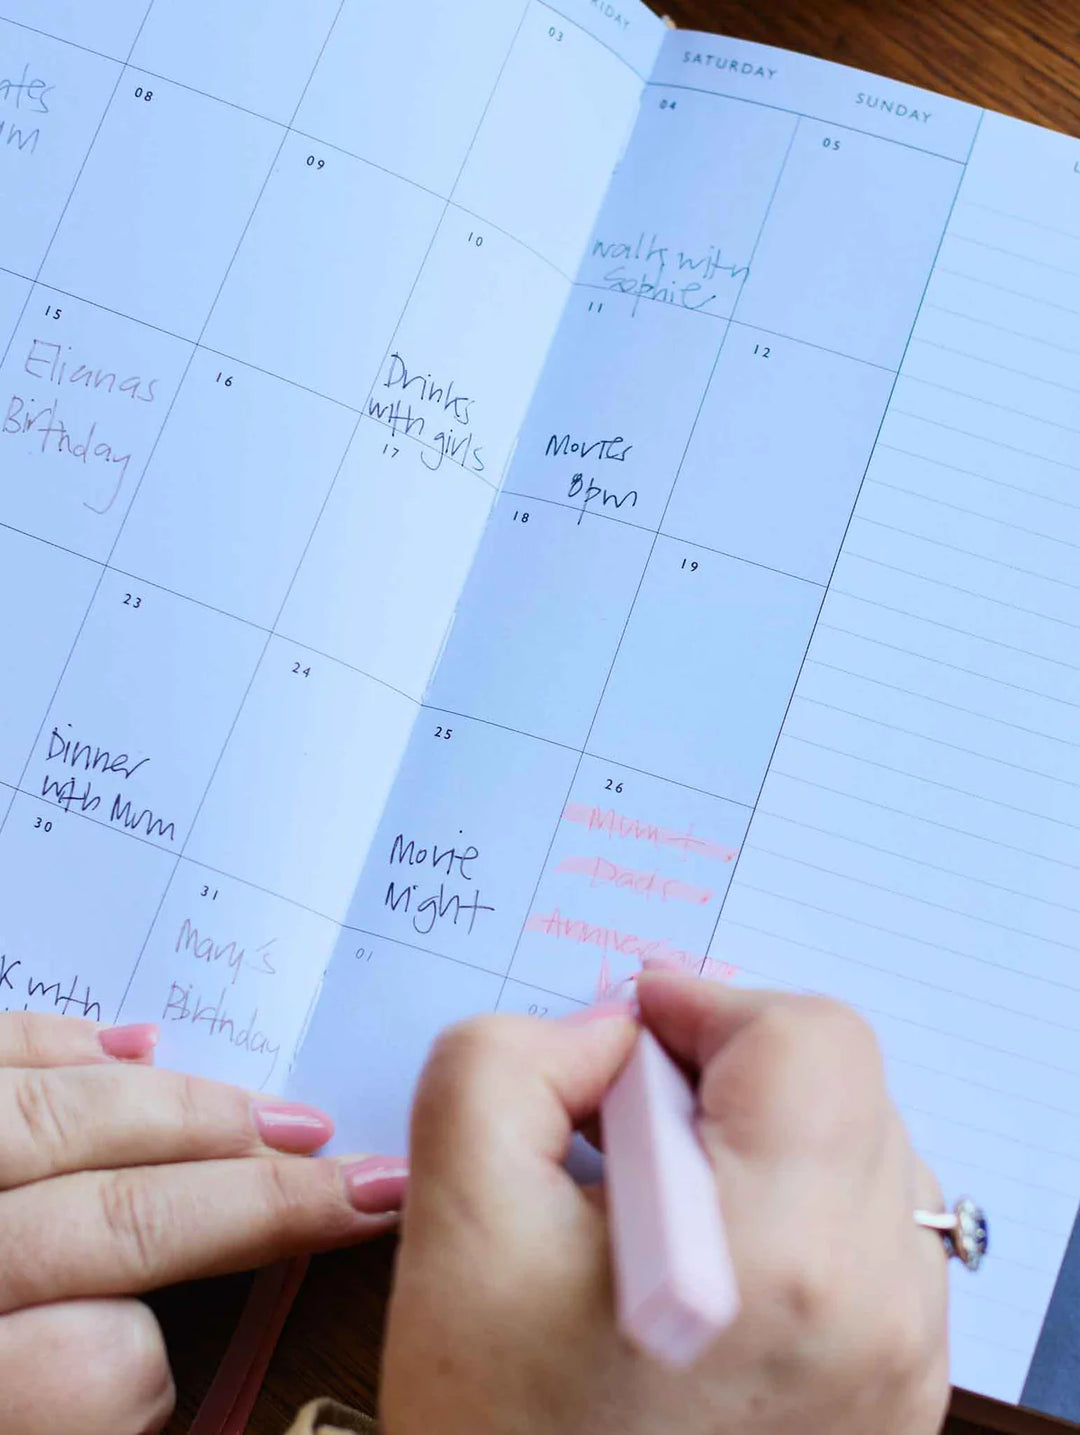 SATURDAY
SUNDAY
03
04
05
08
09
10
Drinks
with girls
11
12
walk with
Sophie
Movies
8pm
15
Elianas
Birthday
16
17
18
19
23
Dinner
with Mum
24
25
Movie
Night
26
Mum +
Dads
30
31
Mary's
Birthday
01
02